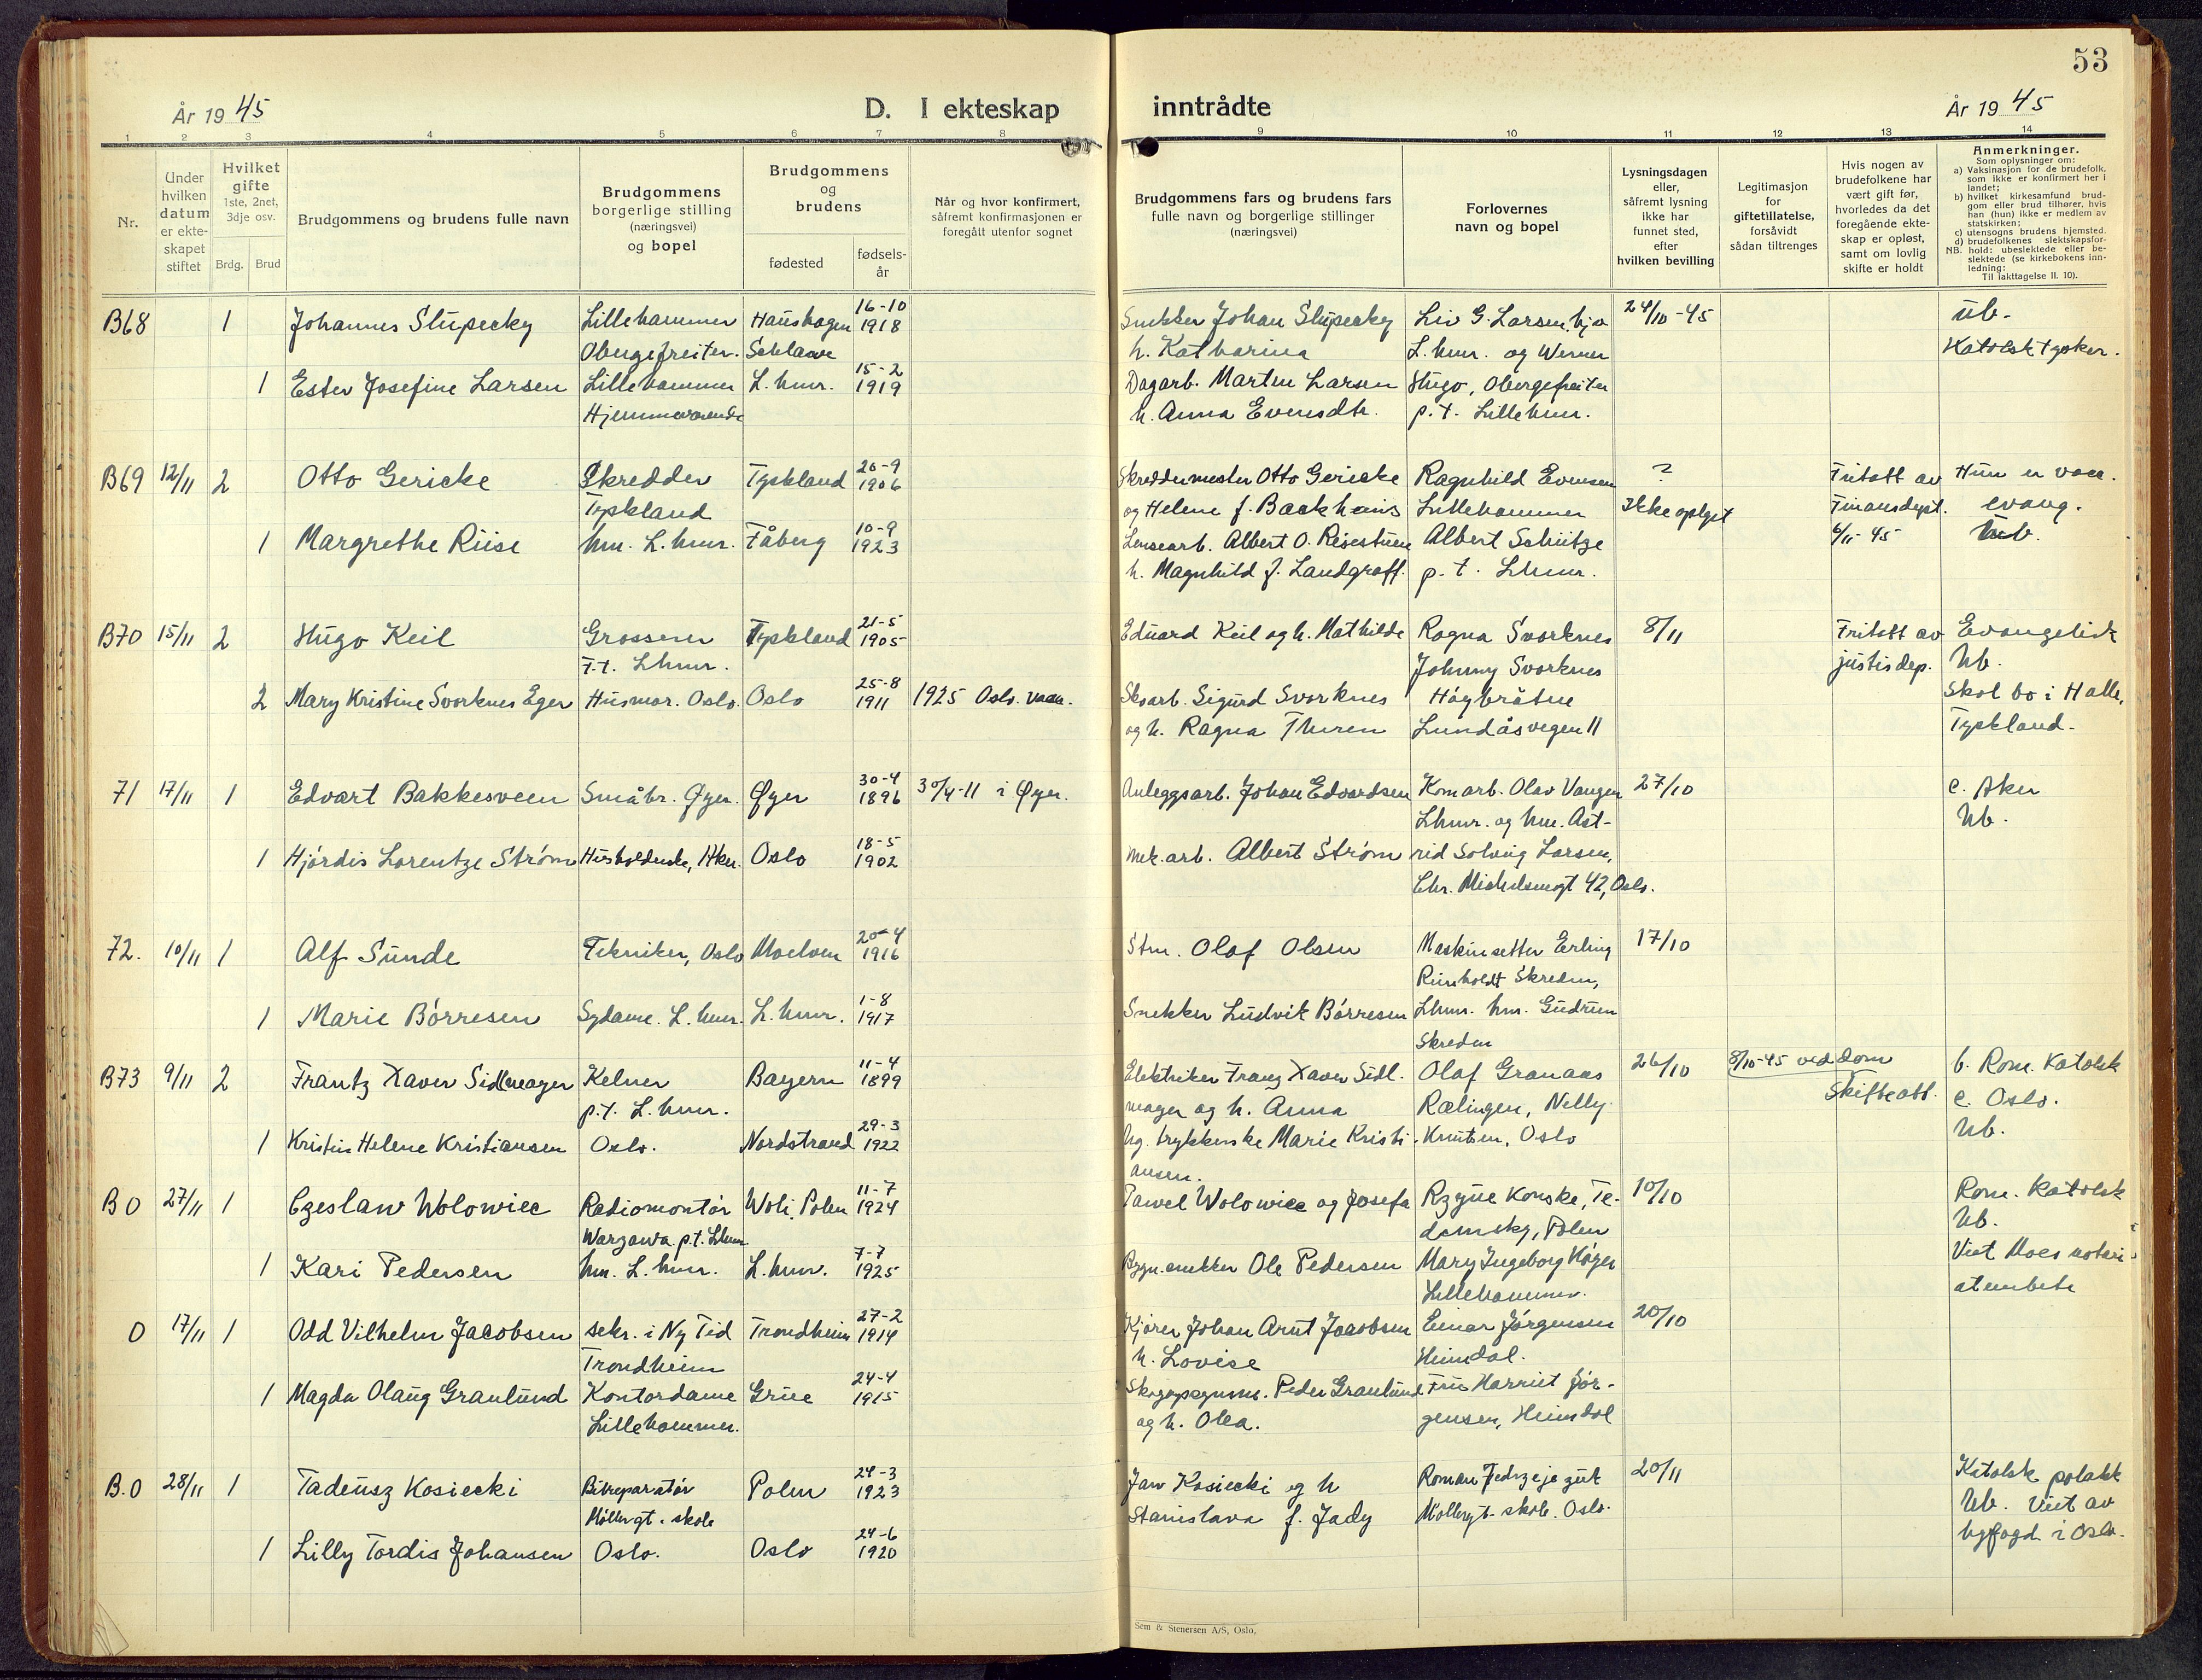 53
År 1945
D. I ekteskap inntrådte
År 1945
1 2 3 4 5 6 7 8 9 10 11 12 13 14
Nr.
Under hvilken datum er ekteskapet stiftet
Hvilket gifte 1ste, 2net, 3dje osv.
Brdg. Brud
Brudgommens og brudens fulle navn
Brudgommens borgerlige stilling (næringsvei) og bopel
Brudgommens og brudens
fødested
fødselsår
Når og hvor konfirmert, såfremt konfirmasjonen er foregått utenfor sognet
Brudgommens fars og brudens fars fulle navn og borgerlige stillinger (næringsvei)
Forlovernes navn og bopel
Lysningsdagen eller, såfremt lysning ikke har funnet sted, efter hvilken bevilling
Legitimasjon for giftetillatelse, forsåvidt sådan tiltrenges
Hvis nogen av brudefolkene har vært gift før, hvorledes da det foregående ekteskap er opløst, samt om lovlig skifte er holdt
Anmerkninger.
Som oplysninger om:
a) Vaksinasjon for de brudefolk, som ikke er konfirmert her i landet;
b) hvilket kirkesamfund brudgom eller brud tilhører, hvis han (hun) ikke er medlem av statskirken;
c) utensogns brudens hjemsted.
d) brudefolkenes slektskapsforhold: ubeslektede eller beslektede (se kirkebokens innledning:
NB. Til iakttagelse II. 10).
B68 1 Johannes Slupecky Lillehammer Haushagen 16-10 1918 Snekker Johan Slupecky Liv G. Larsen, 24/10-45 üb.
Obergefreiter. Schlawe h. Katharina L.hmr. og Werner Katolsk tysker.
1 Ester Josefine Larsen Lillehammer L.hmr. 15-2 1919 Dagarb. Martin Larsen Hugo, Obergefreiter
Hjemmeværende h. Anna Evensdtr. p.t. Lillehmr.
B69 12/11 2 Otto Gericke Skredder Tyskland 20-9 1906 Skreddermester Otto Gericke Ragnhild Evensen ? Fritatt av Hun er vacc.
Tyskland og Helene f. Backhaus Lillehammer Ikke oplyst Finansdept. evang.
1 Margrethe Riise hm. L.hmr. Fåberg 10-9 1923 Lensearb. Albert O. Risestuen Albert Schütze 6/11-45 üb.
h. Magnhild f. Landgraff. p.t. Lhmr.
B70 15/11 2 Hugo Keil Grosserer Tyskland 21-5 1905 Eduard Keil og h. Mathilde Ragna Svorknes 8/11 Fritatt av Evangelisk
F.t. Lhmr. Johnny Svorknes justisdep. Ub.
2 Mary Kristine Svorknes Eger Husmor. Oslo. Oslo 25-8 1911 1925 Oslo. vacc. Skoarb. Sigurd Svorknes Høybråtne Skal bo i Halle,
og h. Ragna Thuren Lundåsvegen 11 Tyskland.
71 17/11 1 Edvart Bakkesveen Småbr. Øyer. Øyer 30-4 1896 30/4-11 i Øyer. Anleggsarb. Johan Edvardsen Komarb. Olav Vangen 27/10 c. Aker
Lhmr. og hm. Ast- Ub.
1 Hjørdis Lorentze Strøm Husholderske, Aker. Oslo 18-5 1902 Mek.arb. Albert Strøm rid Solveig Larsen,
Chr. Michelsensgt 42, Oslo.
72. 10/11 1 Alf Sunde Tekniker, Oslo Moelven 20-4 1916 Stm. Olaf Olsen Maskinsetter Erling 17/10
Reinholdt Skreden,
1 Marie Børresen Sydame. L.hmr. L.hmr. 1-8 1917 Snekker Ludvik Børresen Lhmr. hm. Gudrun
Skreden
B73 9/11 2 Frantz Xaver Sidlmager Kelner Bayern 11-4 1899 Elektriker Franz Xaver Sidl- Olaf Granaas 26/10 8/10-45 ved dom b. Rom. Katolsk
p.t. L.hmr. mager og h. Anna Rælingen, Nelly Skifteatt. c. Oslo.
1 Kristin Helene Kristiansen Oslo. Nordstrand 29-3 1922 Ug. trykkerske Marie Kristi- Knutsen, Oslo Ub.
ansen.
B0 27/11 1 Czeslaw Wolowiec Radiomontør Woli, Polen 11-7 1924 Pawel Wolowiec og Josefa 10/10 Rom. Katolsk
Warzawa p.t. Lhmr. Polen Ub.
1 Kari Pedersen hm. L.hmr. L.hmr. 7-7 1925 Bygn.snekker Ole Pedersen Mary Ingeborg Høyer Viet Moes notari-
Lillehammer. atembete
0 17/11 1 Odd Vilhelm Jacobsen sekr. i Ny Tid Trondheim 27-2 1914 Kjører Johan Arnt Jacobsen Einar Jørgensen 20/10
Trondheim h. Lovise Heimdal.
1 Magda Olaug Granlund Kontordame Grue 24-4 1915 Skogopsynsm. Peder Granlund Fru Harriet Jør-
Lillehammer. og h. Olea. gensen, Heimdal
B.0 28/11 1 Tadeusz Kosiecki Bilreparatør Polen 24-3 1923 Jan Kosiecki og h Roman 20/11 Katolsk polakk
Møllergt. skole Stanislava f. Jady Møllergt. skole. Oslo. Ub. Viet av
1 Lilly Tordis Johansen Oslo. Oslo 24-6 1920 byfogd i Oslo.
Sem & Stenersen A/S, Oslo.